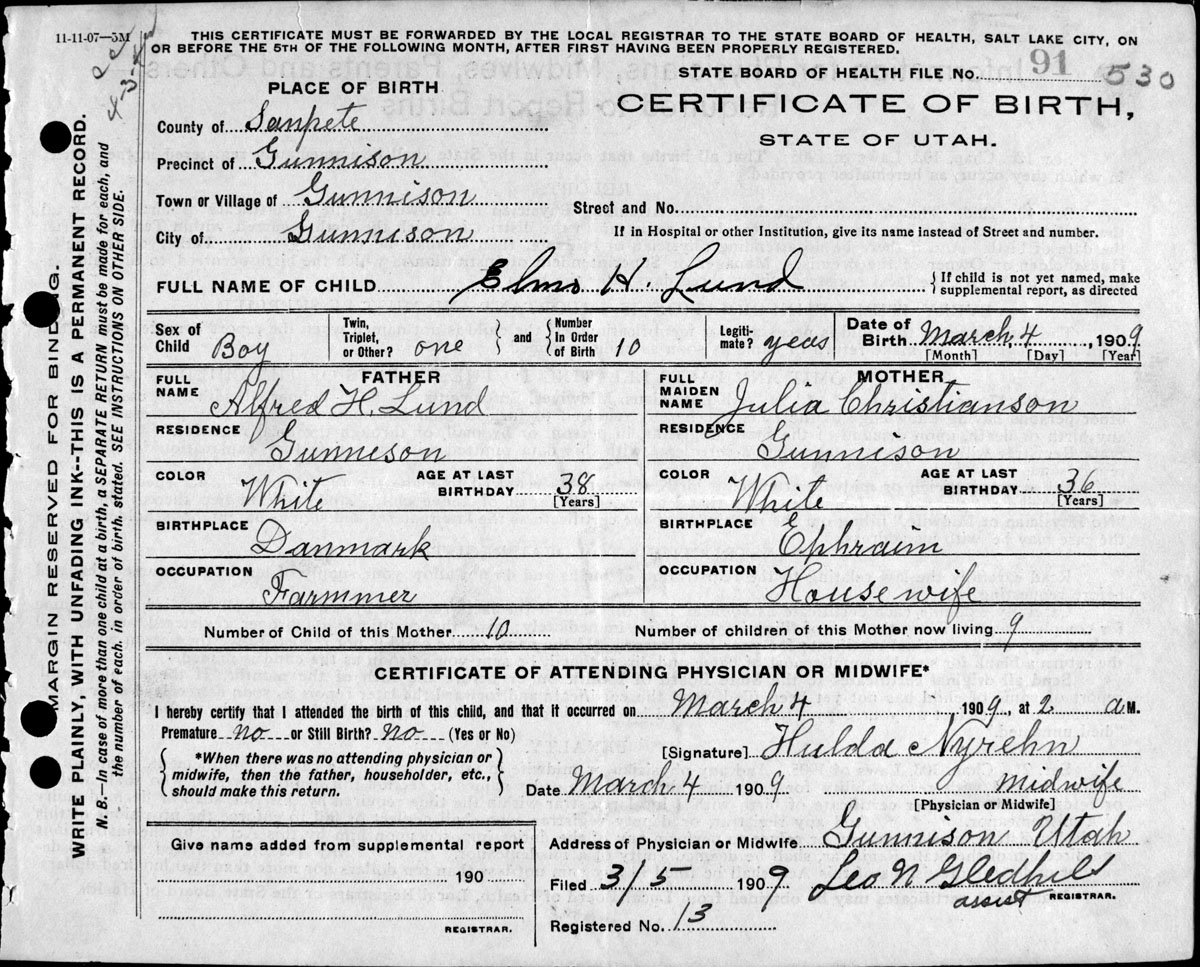 11-11-07—3M
THIS CERTIFICATE MUST BE FORWARDED BY THE LOCAL REGISTRAR TO THE STATE BOARD OF HEALTH, SALT LAKE CITY, ON
OR BEFORE THE 5TH OF THE FOLLOWING MONTH, AFTER FIRST HAVING BEEN PROPERLY REGISTERED.
STATE BOARD OF HEALTH FILE No. 91 530
PLACE OF BIRTH
CERTIFICATE OF BIRTH,
STATE OF UTAH.
County of Sanpete
Precinct of Gunnison
Town or Village of Gunnison
Street and No.
City of Gunnison
If in Hospital or other Institution, give its name instead of Street and number.
FULL NAME OF CHILD Elmo H. Lund { If child is not yet named, make
supplemental report, as directed
Sex of Child Boy
Twin, Triplet, or Other? one } and { Number In Order of Birth 10
Legiti- mate? yeas
Date of Birth March 4, 1909
[Month] [Day] [Year]
FATHER
FULL NAME Alfred H. Lund
MOTHER
FULL MAIDEN NAME Julia Christianson
RESIDENCE Gunneson
RESIDENCE Gunnison
COLOR White AGE AT LAST BIRTHDAY 38 [Years]
COLOR White AGE AT LAST BIRTHDAY 36 [Years]
BIRTHPLACE Danmark
BIRTHPLACE Ephraim
OCCUPATION Farmmer
OCCUPATION House wife
Number of Child of this Mother 10 Number of children of this Mother now living 9
CERTIFICATE OF ATTENDING PHYSICIAN OR MIDWIFE*
I hereby certify that I attended the birth of this child, and that it occurred on March 4 1909, at 2 a M.
Premature no or Still Birth? no (Yes or No)
[Signature] Hulda Nyrehn
{ *When there was no attending physician or
midwife, then the father, householder, etc.,
should make this return. }
Date March 4 1909 midwife
[Physician or Midwife]
Address of Physician or Midwife Gunnison Utah
Give name added from supplemental report
190
REGISTRAR.
Filed 3/5 1909 Leo N Gledhill
assist REGISTRAR.
Registered No. 13
MARGIN RESERVED FOR BINDING.
WRITE PLAINLY, WITH UNFADING INK--THIS IS A PERMANENT RECORD.
N. B.—In case of more than one child at a birth, a SEPARATE RETURN must be made for each, and
the number of each, in order of birth, stated. SEE INSTRUCTIONS ON OTHER SIDE.